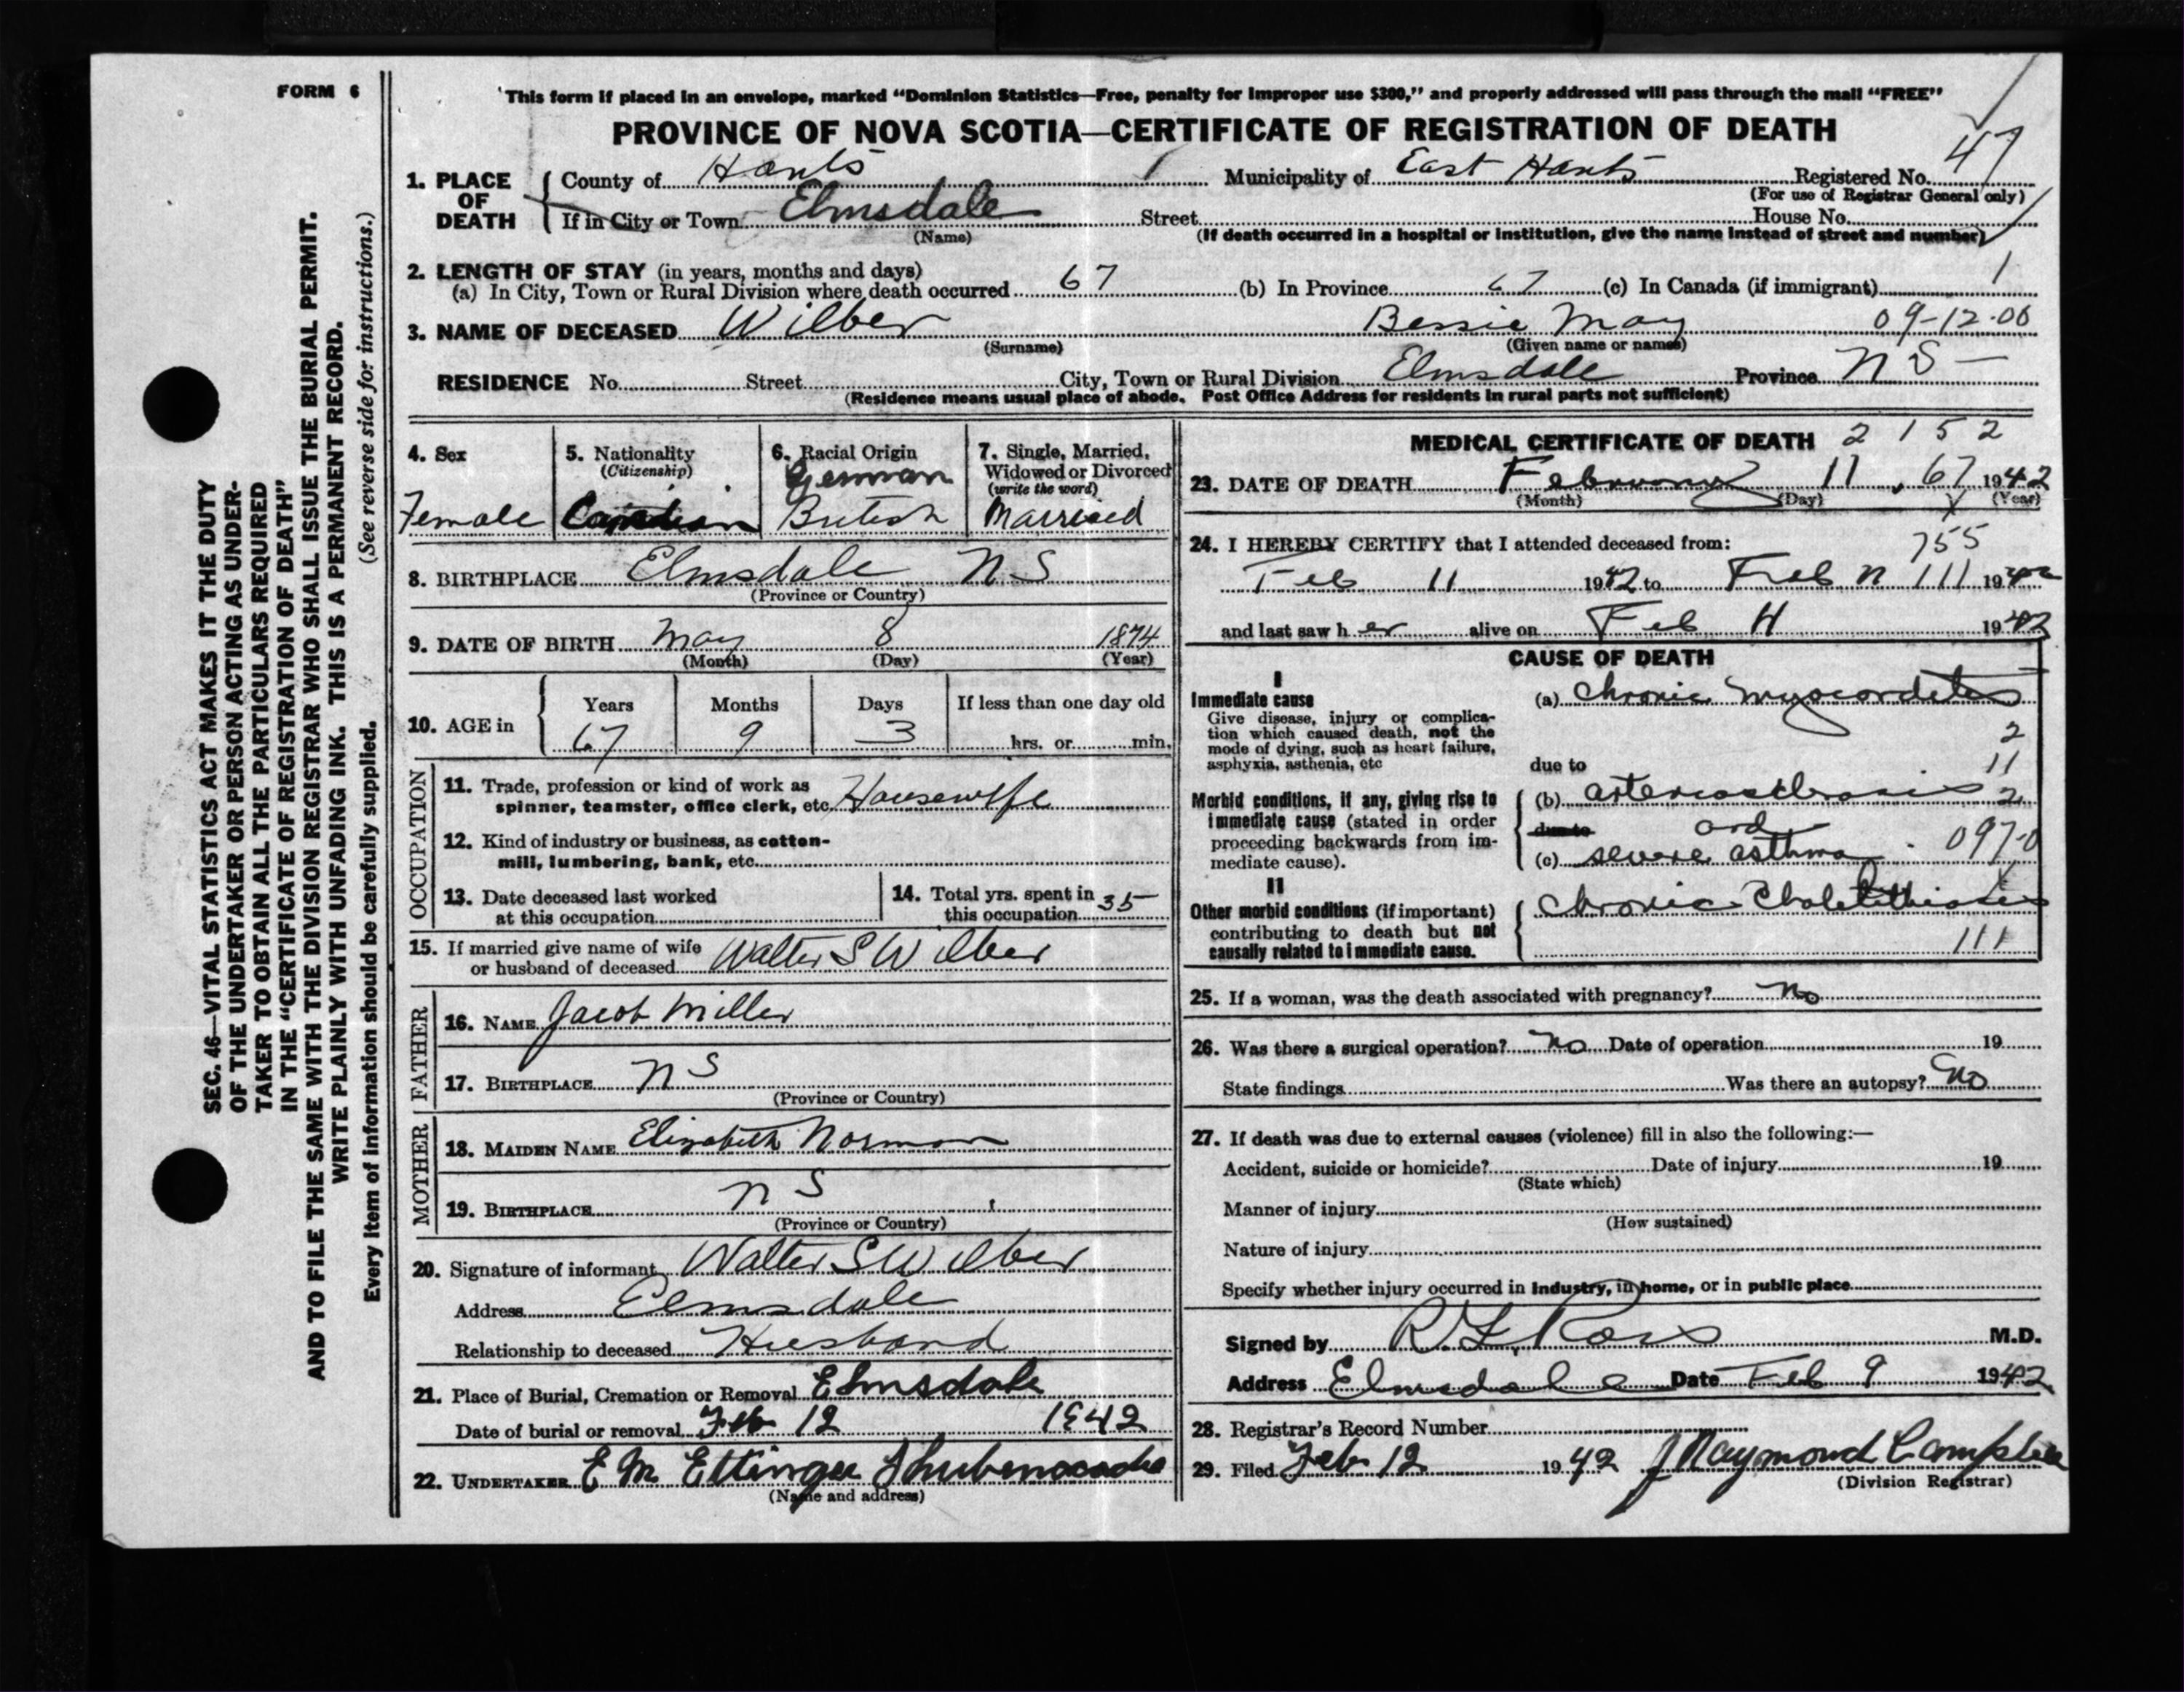 FORM 6
SEC. 46—VITAL STATISTICS ACT MAKES IT THE DUTY
OF THE UNDERTAKER OR PERSON ACTING AS UNDER-
TAKER TO OBTAIN ALL THE PARTICULARS REQUIRED
IN THE "CERTIFICATE OF REGISTRATION OF DEATH"
AND TO FILE THE SAME WITH THE DIVISION REGISTRAR WHO SHALL ISSUE THE BURIAL PERMIT.
WRITE PLAINLY WITH UNFADING INK. THIS IS A PERMANENT RECORD.
Every item of information should be carefully supplied. (See reverse side for instructions.)
This form if placed in an envelope, marked "Dominion Statistics—Free, penalty for improper use $300," and properly addressed will pass through the mail "FREE"
PROVINCE OF NOVA SCOTIA—CERTIFICATE OF REGISTRATION OF DEATH
1. PLACE OF DEATH County of Hants Municipality of East Hants Registered No. 47
(For use of Registrar General only)
If in City or Town Elmsdale Street House No.
(Name) (If death occurred in a hospital or institution, give the name instead of street and number)
2. LENGTH OF STAY (in years, months and days)
(a) In City, Town or Rural Division where death occurred 67 (b) In Province 67 (c) In Canada (if immigrant) 1
3. NAME OF DECEASED Wilber Bessie May 09-12-06
(Surname) (Given name or names)
RESIDENCE No. Street City, Town or Rural Division Elmsdale Province N S
(Residence means usual place of abode. Post Office Address for residents in rural parts not sufficient)
4. Sex Female
5. Nationality (Citizenship) Canadian
6. Racial Origin German British
7. Single, Married, Widowed or Divorced (write the word) Married
8. BIRTHPLACE Elmsdale N S
(Province or Country)
9. DATE OF BIRTH May 8 1874
(Month) (Day) (Year)
10. AGE in Years 67 Months 9 Days 3 If less than one day old hrs. or min.
OCCUPATION
11. Trade, profession or kind of work as
spinner, teamster, office clerk, etc. Housewife
12. Kind of industry or business, as cotton-
mill, lumbering, bank, etc.
13. Date deceased last worked
at this occupation
14. Total yrs. spent in
this occupation 35
15. If married give name of wife
or husband of deceased Walter S Wilber
FATHER
16. NAME Jacob Miller
17. BIRTHPLACE N S
(Province or Country)
MOTHER
18. MAIDEN NAME Elizabeth Norman
19. BIRTHPLACE N S
(Province or Country)
20. Signature of informant Walter S Wilber
Address Elmsdale
Relationship to deceased Husband
21. Place of Burial, Cremation or Removal Elmsdale
Date of burial or removal Feb 12 1942
22. UNDERTAKER E M Ettinger Shubenacadie
(Name and address)
MEDICAL CERTIFICATE OF DEATH 2152
23. DATE OF DEATH February 11 67 1942
(Month) (Day) (Year)
24. I HEREBY CERTIFY that I attended deceased from: 755
Feb 11 1942 to Feb 11 1942
and last saw h er alive on Feb 11 1942
CAUSE OF DEATH
I
Immediate cause
Give disease, injury or complica-
tion which caused death, not the
mode of dying, such as heart failure,
asphyxia, asthenia, etc
(a) Chronic Myocarditis
2
due to 11
Morbid conditions, if any, giving rise to
immediate cause (stated in order
proceeding backwards from im-
mediate cause).
(b) arteriosclerosis 2
due to and
(c) severe asthma 097-0
II
Other morbid conditions (if important)
contributing to death but not
causally related to immediate cause.
Chronic Cholelithiasis
111
25. If a woman, was the death associated with pregnancy? No
26. Was there a surgical operation? No Date of operation 19
State findings Was there an autopsy? No
27. If death was due to external causes (violence) fill in also the following:—
Accident, suicide or homicide? Date of injury 19
(State which)
Manner of injury
(How sustained)
Nature of injury
Specify whether injury occurred in industry, in home, or in public place
Signed by R. L. Ross M.D.
Address Elmsdale Date Feb 9 1942
28. Registrar's Record Number
29. Filed Feb 12 1942 J Raymond Campbell
(Division Registrar)